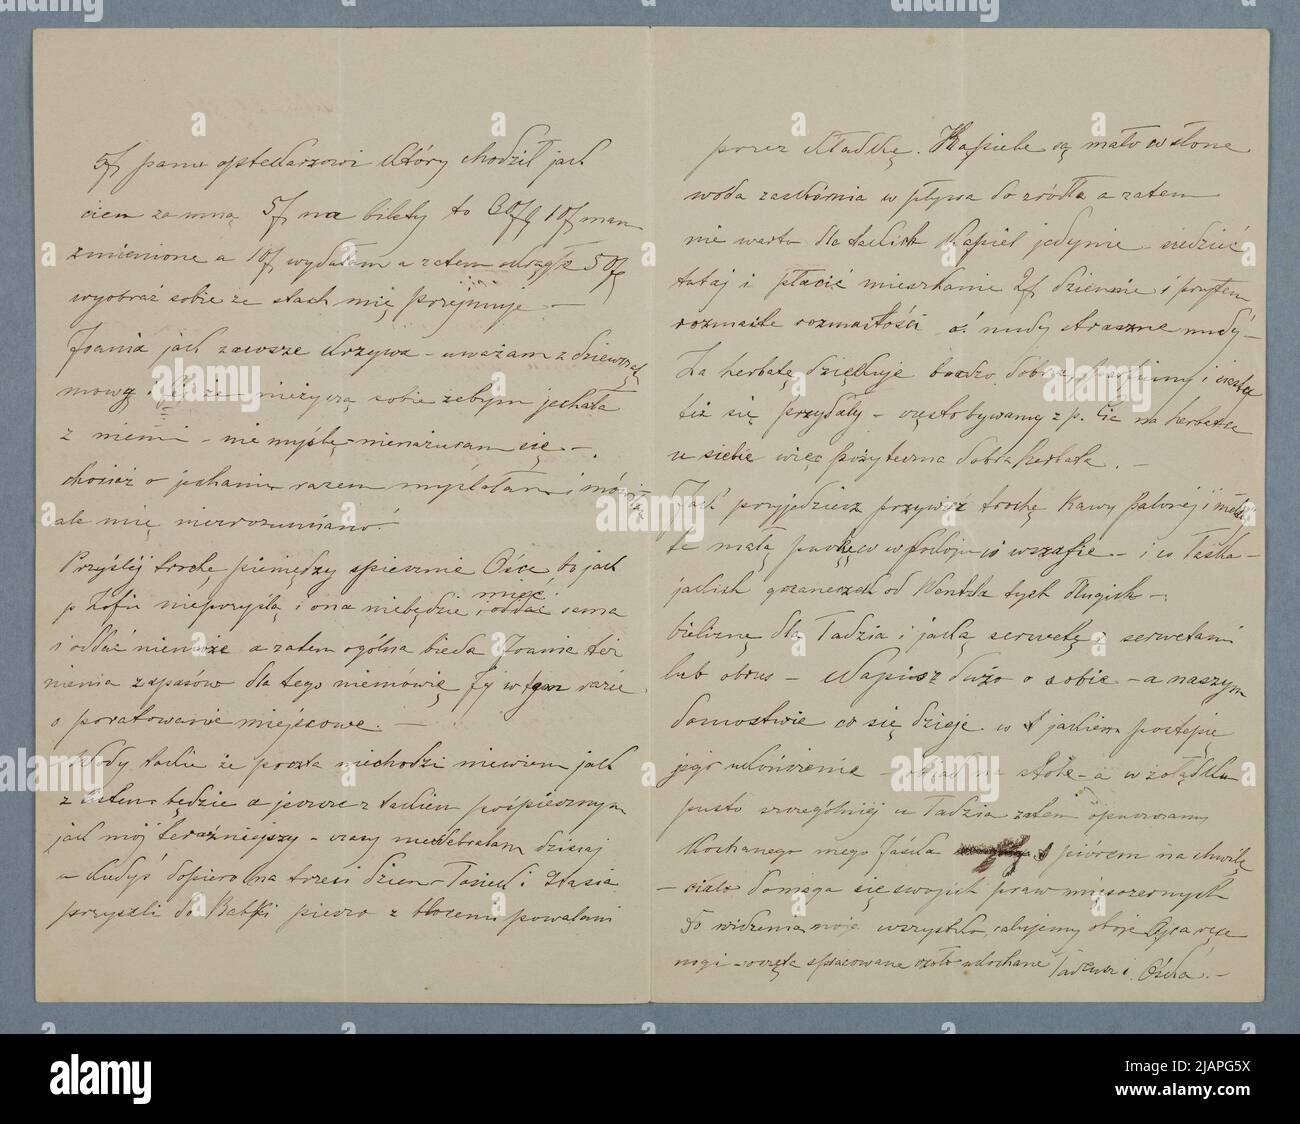 5f panu aptekarzowi który chodził jak
ciem za mną 5f na bilety to 30f 10f mam
zmienione a 10f wydałam a zatem okrągłe 50f
wyobraź sobie że strach mię przejmuje —
Joania jak zawsze krzywa – uważam z dziewczęt
mowy i że nieżyczą sobie żebym jechała
z niemi – nie myślę – nienarzucam się —.
chociaż o jechaniu razem myślałam i mówiłam
ale mię niezrozumiano!
Przyślij trochę pieniędzy spiesznie Ośce bo jak
p Zofia nieprzyślą i ona niebędzie mieć sama
i oddać niemoże a zatem ogólna bieda Joanie też
nienia zapasów dla tego niemówię Jej w tym razie
o poratowanie miejscowe. —
Szkody takie że poczta niechodzi niewiem jak
z listem będzie a jeszcze z takim pośpiesznym
jak mój teraźniejszy – czasy nieodebrałam dzisiaj
– kiedyś dopiero na trzeci dzień – Tasieńki Stasia
przyszli do Rabki pieszo z tłocem powalani
przez kładkę. Kąpiele są mało w słone
woda zaskórnia wpływa do źródła a zatem
nie warto dla takich kąpiel jedynie siedzieć
tutaj i płacić mieszkanie 2f dziennie i prytem
rozmaite rozmaitości a i nudy straszne nudy –
Za herbatę dziękuję bardzo dobra, pijemy i ciastka
też się przydały – często bywamy z p. Cie na herbatce
u siebie więc pożyteczna dobra herbata. —
Jak przyjedziesz przywieź trochę Kawy Palonej i miel
te małą puszkę co w pokoju w szafie – i co Taśka –
jakich grzaneczek od Wentzla tych długich –.
bieliznę dla Tadzia i jaką serwetę z serwetami
lub obrus – Napisz dużo o sobie – a naszym
domostwie co się dzieje w jakiem postępie
jego ukończenie – obiad na stole – a w żołądku
pusto szczególniej u Tadzia zatem opuszczamy
Kochanego mego Jaśka piórem na chwilę
– ciało domaga się swojich praw mięsożernych
do widzenia moje wszystko, całujemy oboje Ojca ręce
nogi – ręce spracowane czoło ukochane Tadeusz i Ośka. —
alamy
Image ID: 2JAPG5X
www.alamy.com